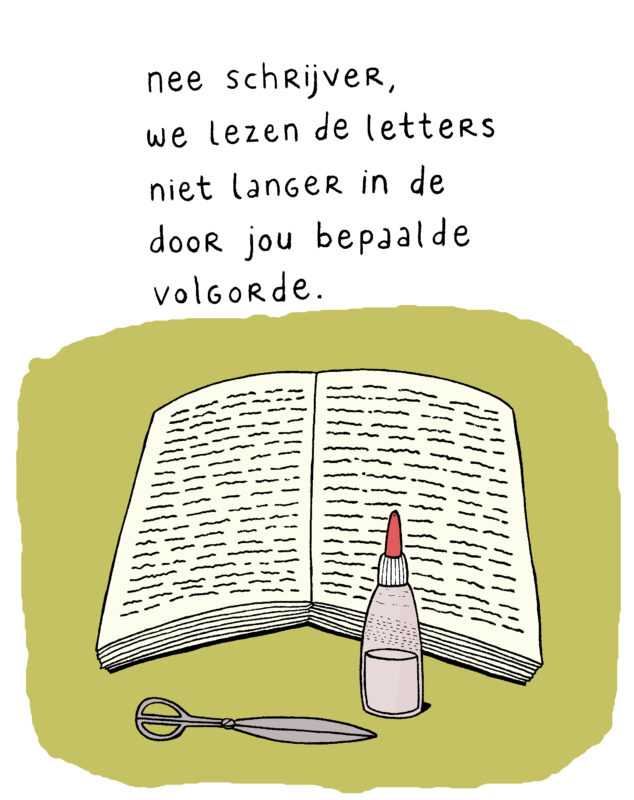 nee schrijver,
we lezen de letters
niet langer in de
door jou bepaalde
volgorde.